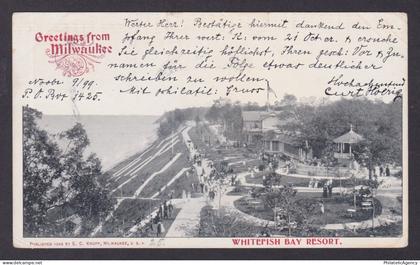 Greetings from
Milwaukee
Werter Herr! Bestätige hiermit dankend den Em-
pfang Ihrer wert. K. vom 21 Octor. & ersuche
Sie gleichzeitig höflichst, Ihren gesch. Vor & Zu-
namen für die Folge etwas deutlicher
schreiben zu wollen.
Hochachtungsvoll
Mit philatel. Gruss
Curt
9/99
P. O. Box 1425
PUBLISHED 1898 BY E. C. KROPP, MILWAUKEE, U.S.A.
25.
WHITEFISH BAY RESORT.